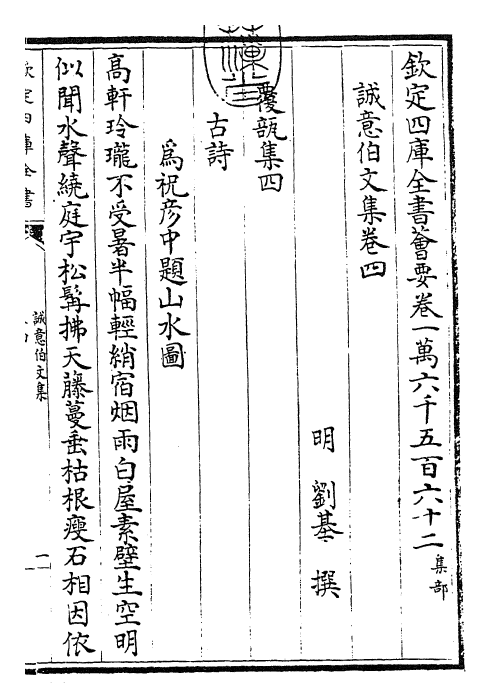 欽定四庫全書薈要卷一萬六千五百六十二 集部
誠意伯文集卷四
明 劉基 撰
覆瓿集四
古詩
為祝彥中題山水圖
高軒玲瓏不受暑半幅輕綃宿烟雨白屋素壁生空明
似聞水聲繞庭宇松髯拂天藤蔓垂枯根瘦石相因依
欽定四庫全書
誠意伯文集
一